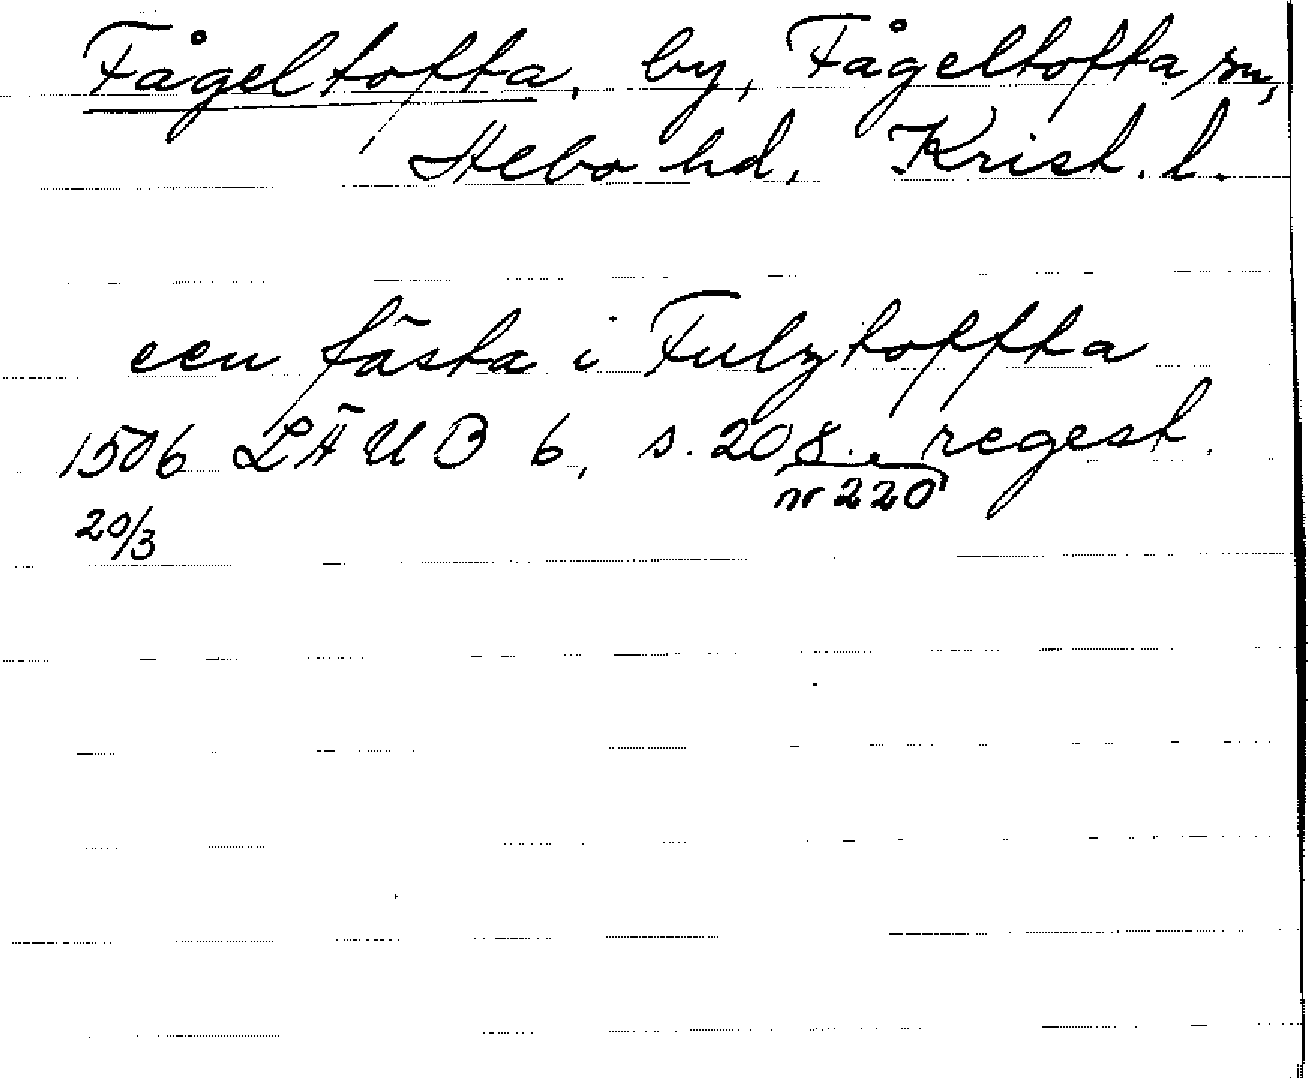 Fågeltofta, by, Fågeltofta sn,
Albo hd. Krist. l.
een fästa i Fulztoffta
1506 LÄUB 6, s. 208., regest.
nr 220
20/3